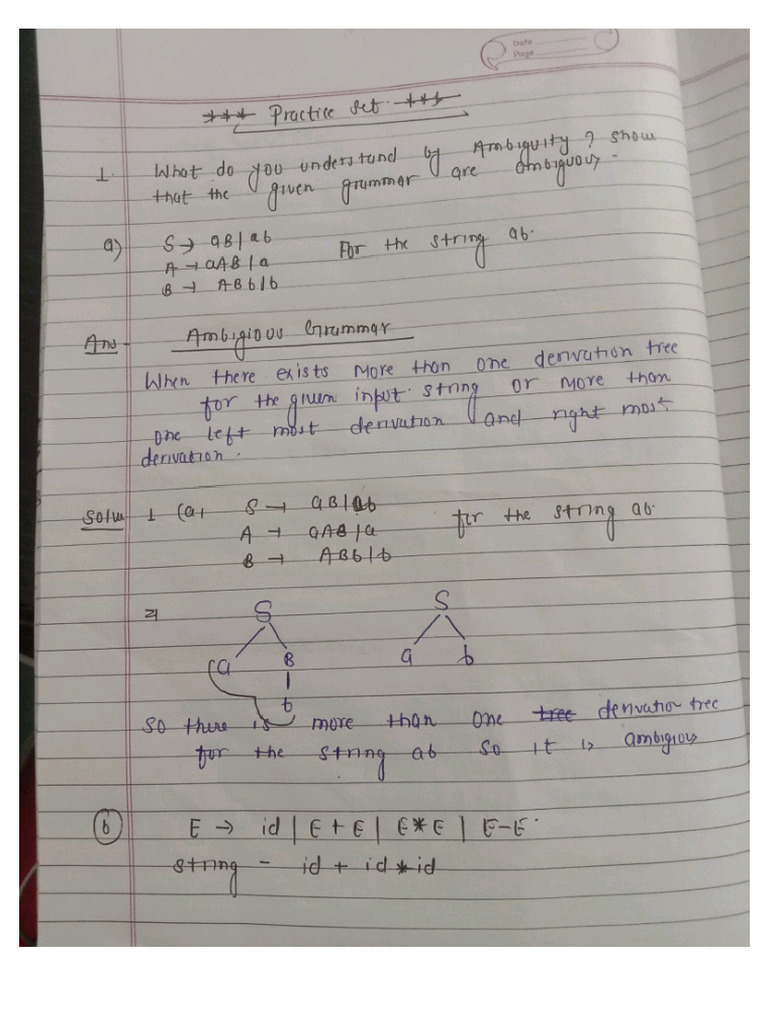 Date
Page
*** Practice set ***
1. What do you understand by Ambiguity? show
that the given grammar are ambiguous.
a) S → aB | ab For the string ab.
A → aAB | a
B → ABb | b
Ans - Ambigious Grammar
When there exists more than one derivation tree
for the given input string or more than
one left most derivation and right most
derivation.
Solun 1 (a) S → aB | ab for the string ab.
A → aAB | a
B → ABb | b
S S
a B a b
b
So there is more than one tree derivation tree
for the string ab so it is ambigious
(b) E → id | E + E | E * E | E - E.
string - id + id * id